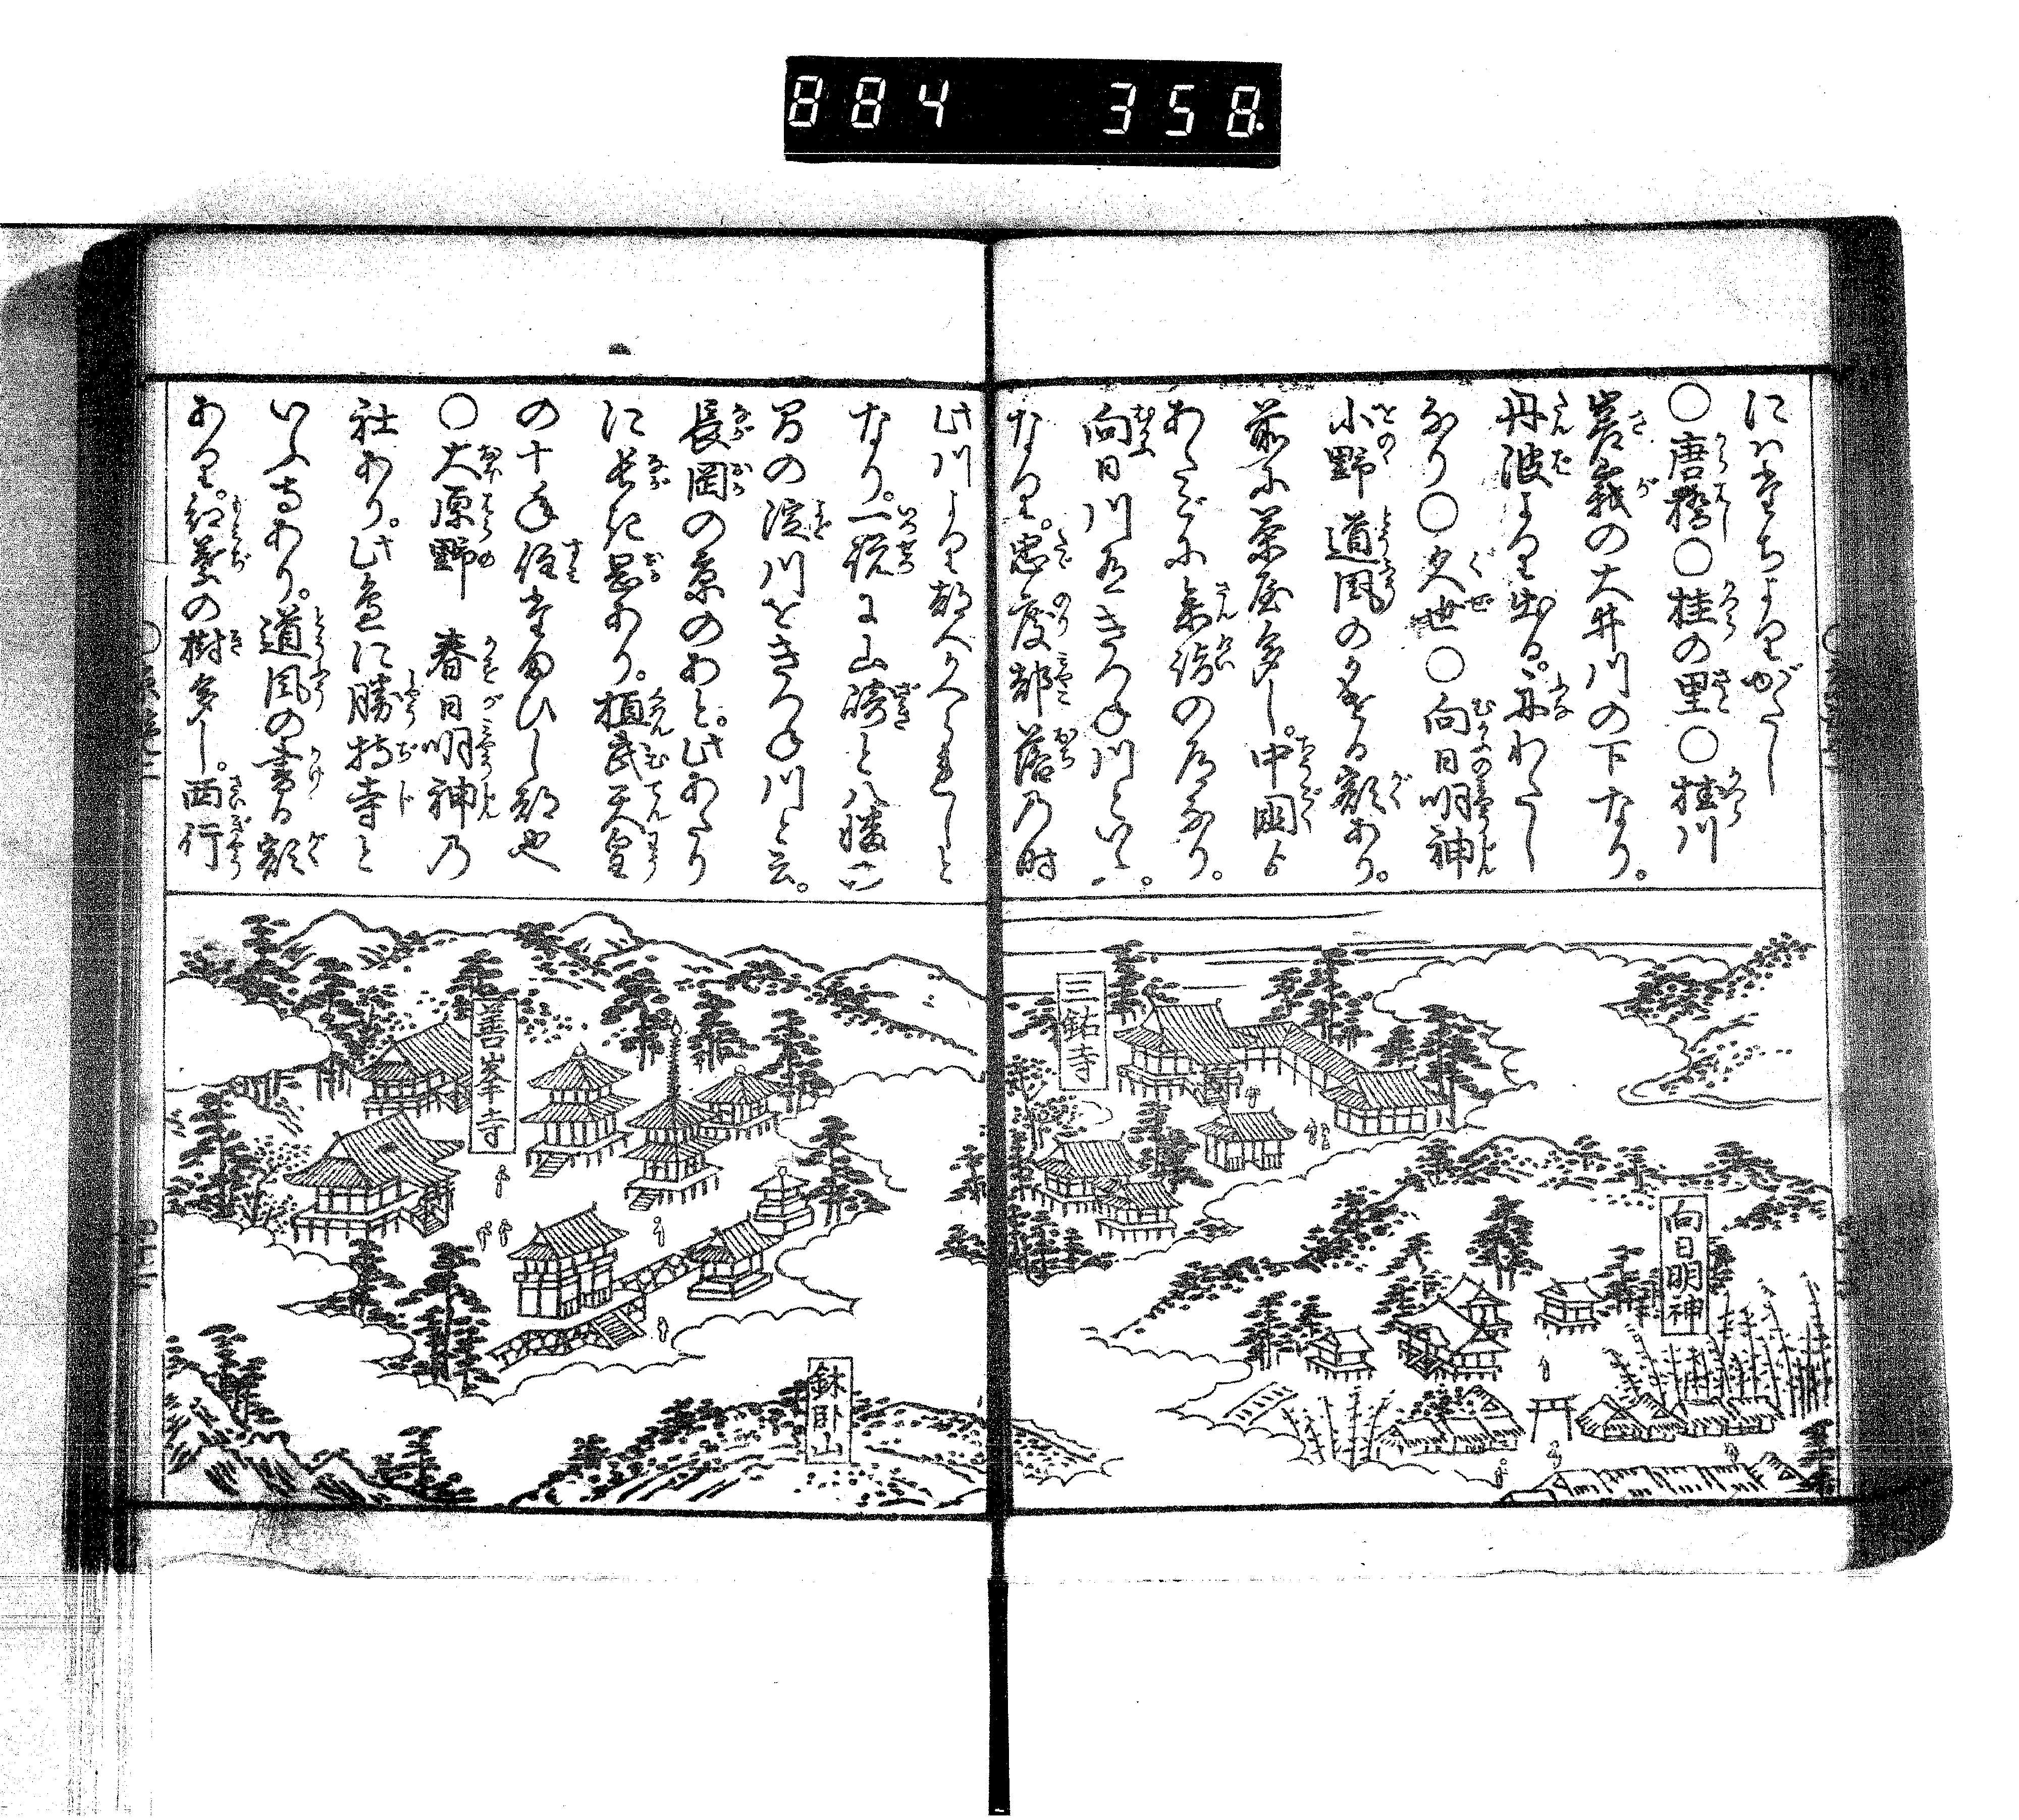 884 358
にハ堂ちよりがたし
○唐橋○桂の里○桂川
嵯峨の大井川の下なり。
丹波より出る。舟わたし
あり○久世○向日明神
小野道風の名ある額あり。
前に茶屋多し。中国よ
向日川又きつね川といふ。
なり。忠度都落乃時
此川より都へかへられしと
なり。一説に山崎と八幡の
間の淀川をきつね川と云。
長岡の京のあと。此あたり
に長き岡あり。植武天皇
の十年住たまひし都也
○大原野 春日明神乃
社あり。此辺に勝持寺と
いふ寺あり。道風の書る額
あり。紅葉の樹多し。西行
三鈷寺
向日明神
善峯寺
鉢卧山